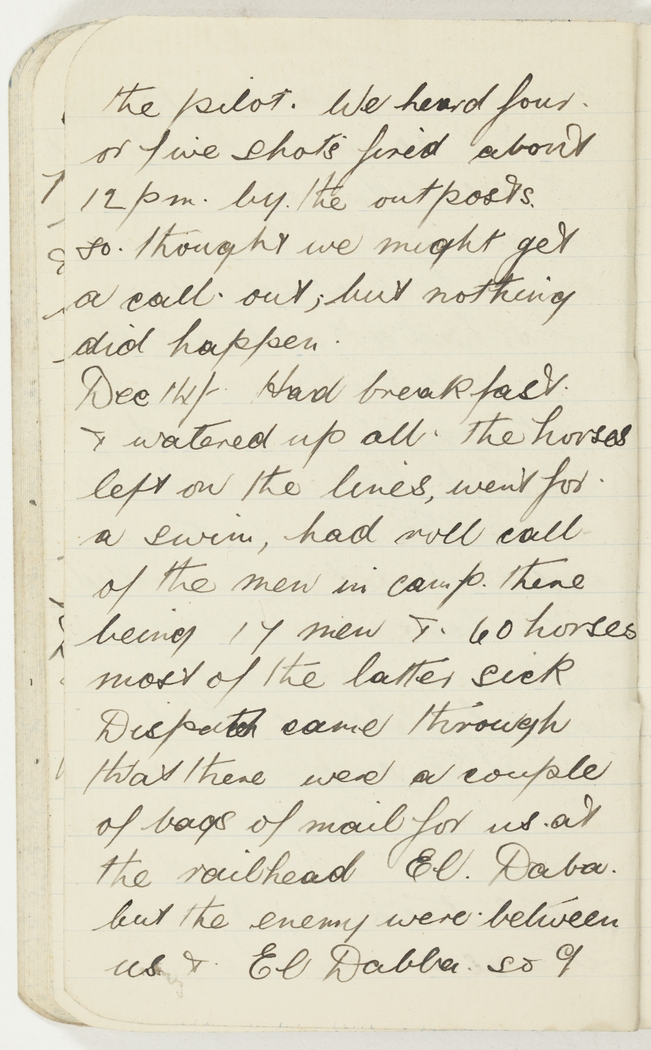 the pilot. We heard four
or five shots fired about
12 pm. by. the outposts.
so. thought we might get
a call. out, but nothing
did happen.
Dec 14/. Had breakfast.
& watered up all. the horses
left on the lines, went for.
a swim, had roll call
of the men in camp. there
being 17 men &. 60 horses
most of the latter sick
Dispatch came through
that there were a couple
of bags of mail for us. at
the railhead El. Daba.
but the enemy were between
us &. El Dabba. so I